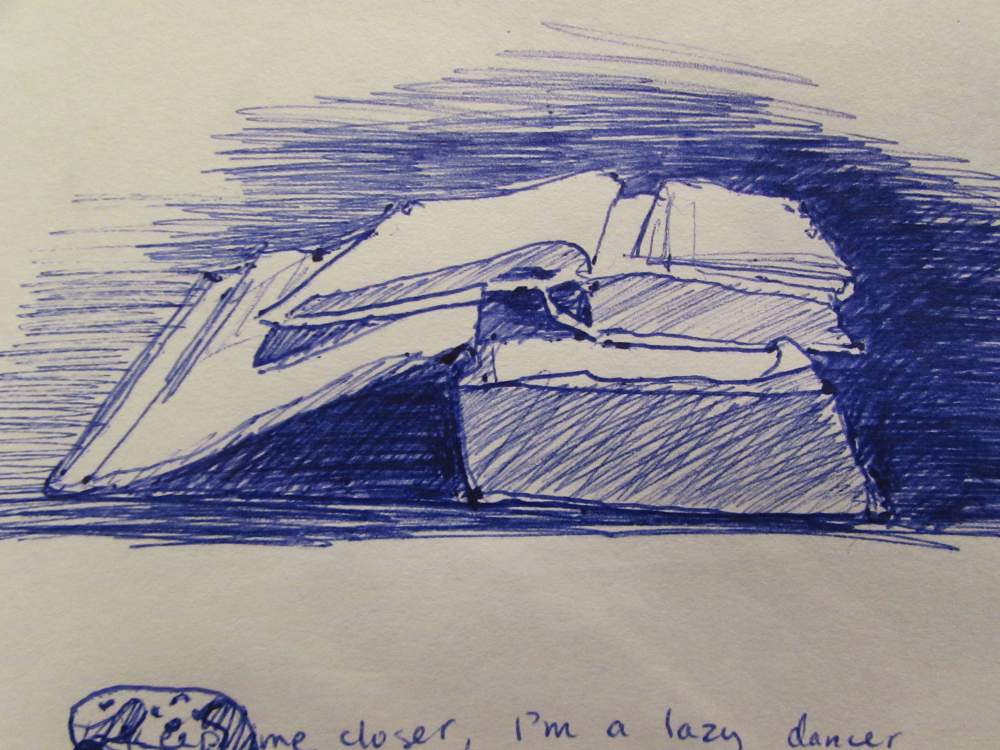 Keep me closer, I'm a lazy dancer